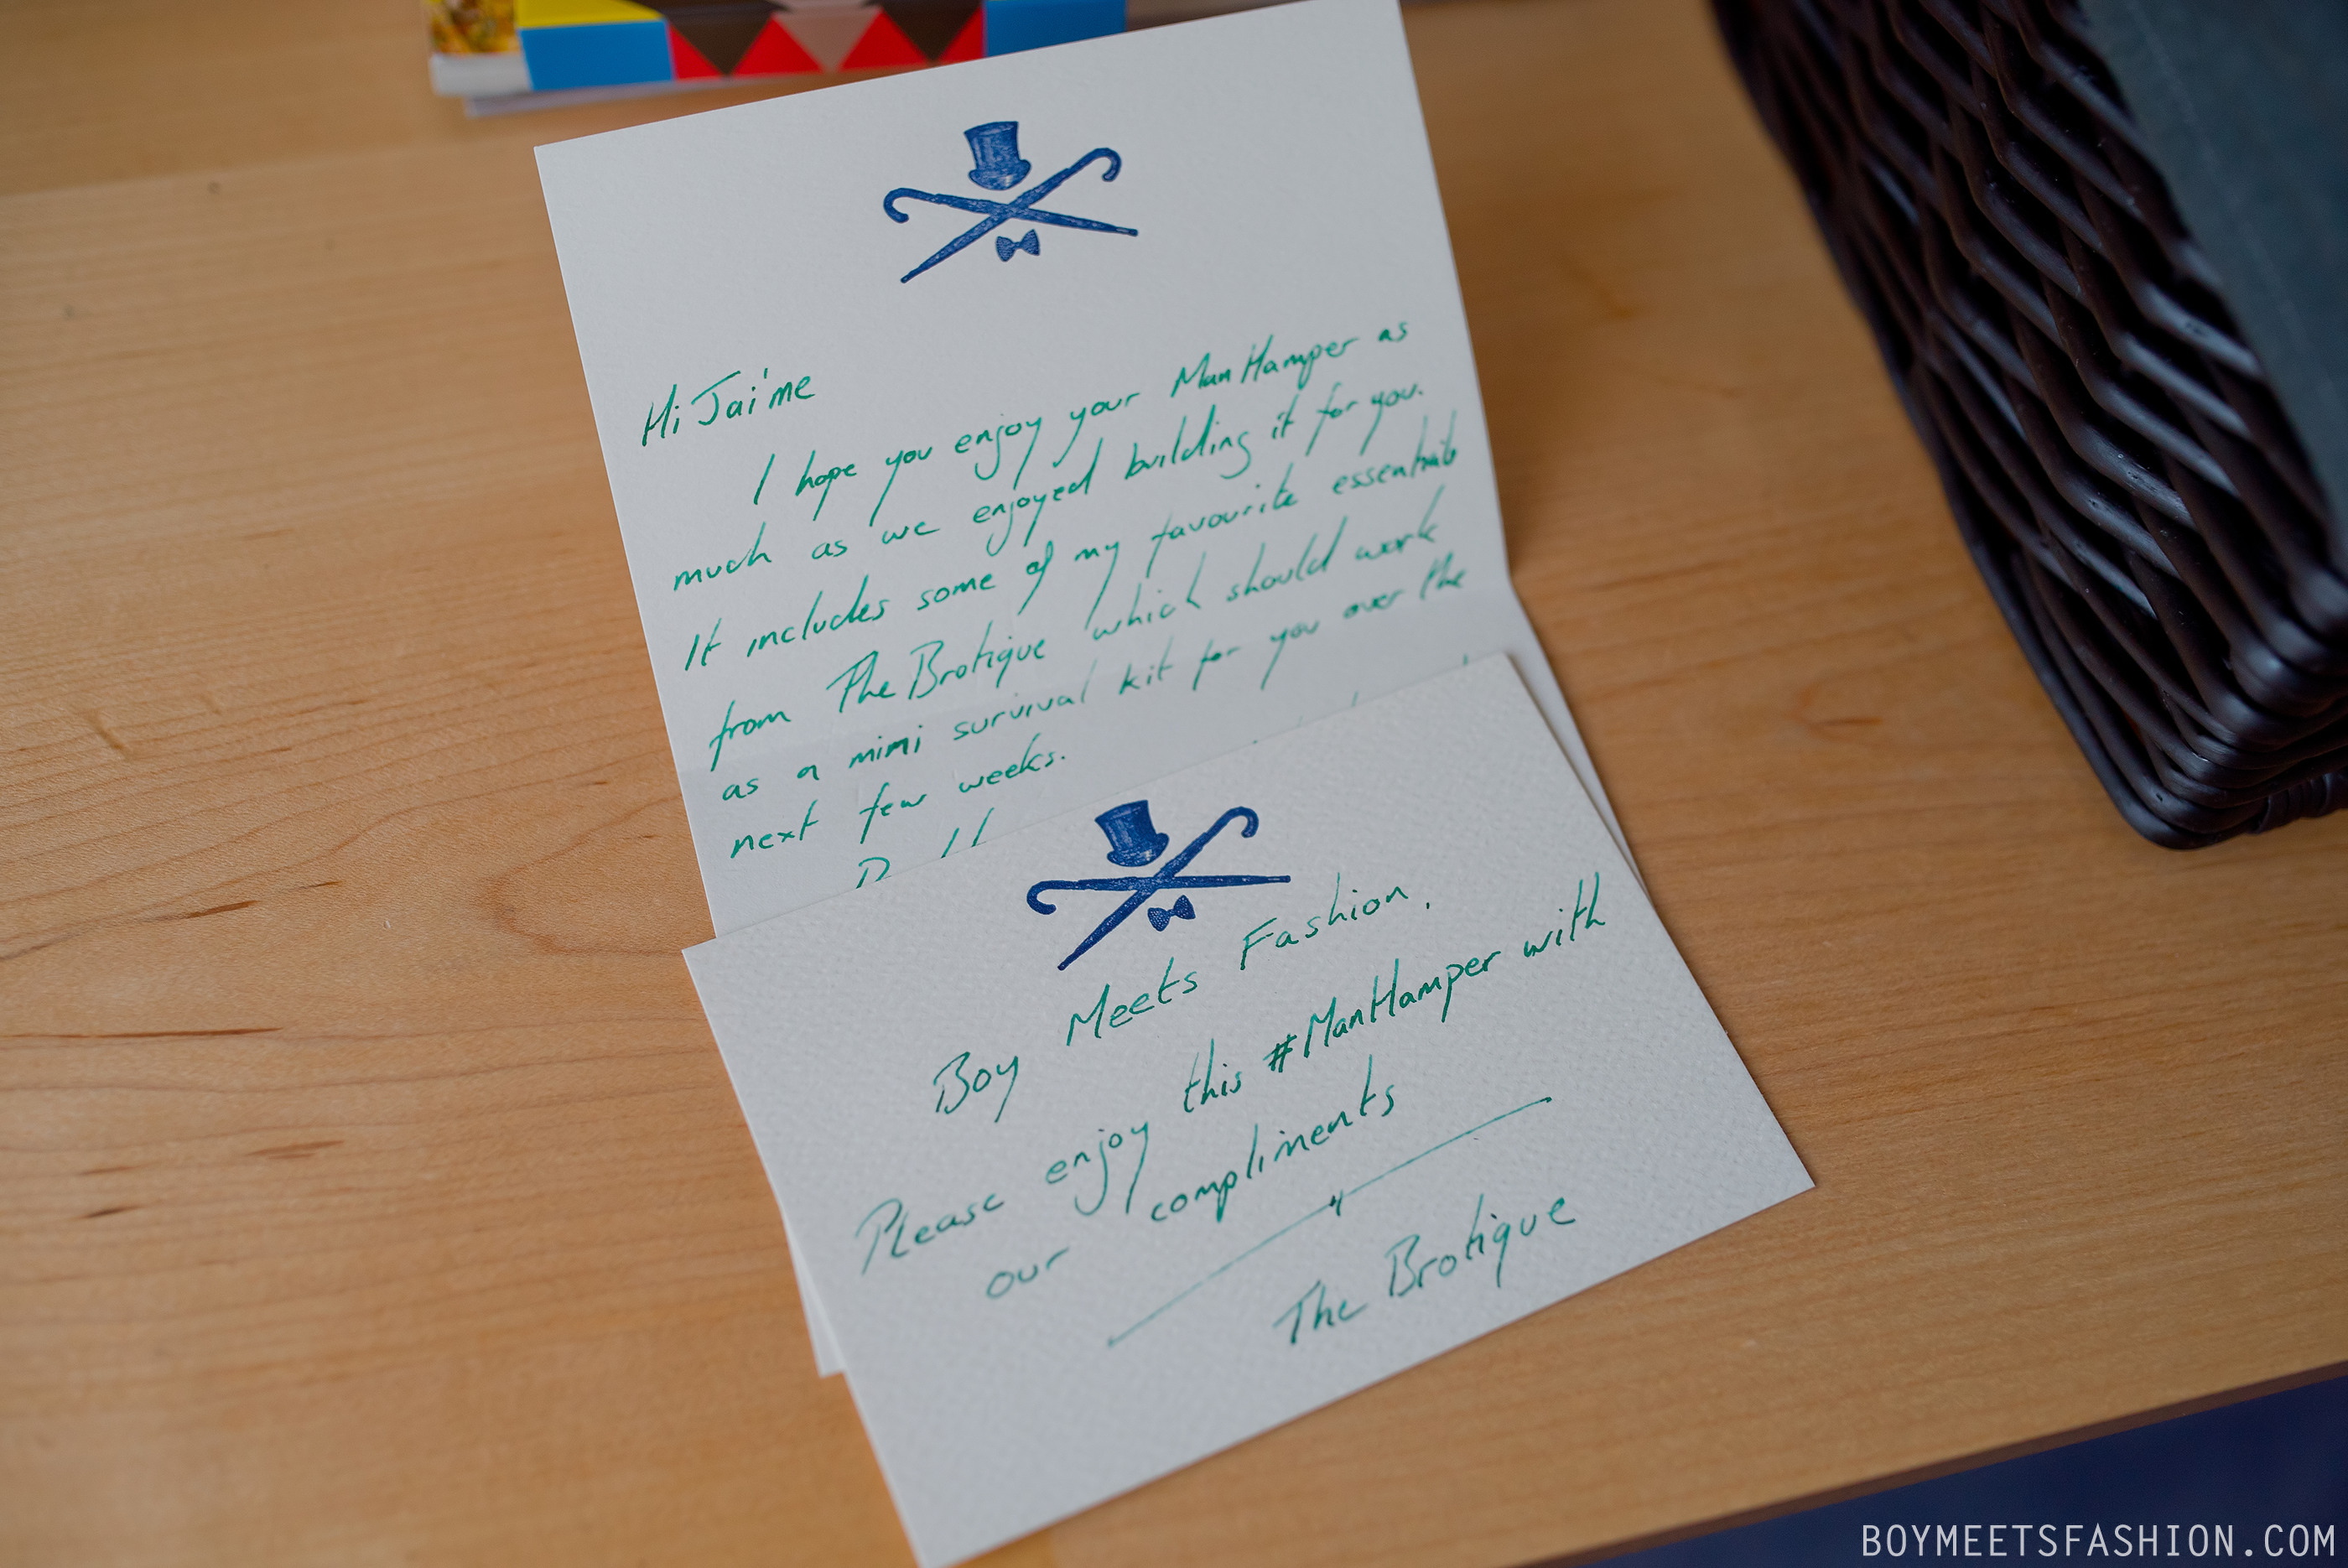 Hi Jai'me
I hope you enjoy your ManHamper as
much as we enjoyed building it for you.
It includes some of my favourite essentials
from The Brotique which should work
as a mini survival kit for you over the
next few weeks.
Boy Meets Fashion,
Please enjoy this #ManHamper with
our compliments
The Brotique
BOYMEETSFASHION.COM